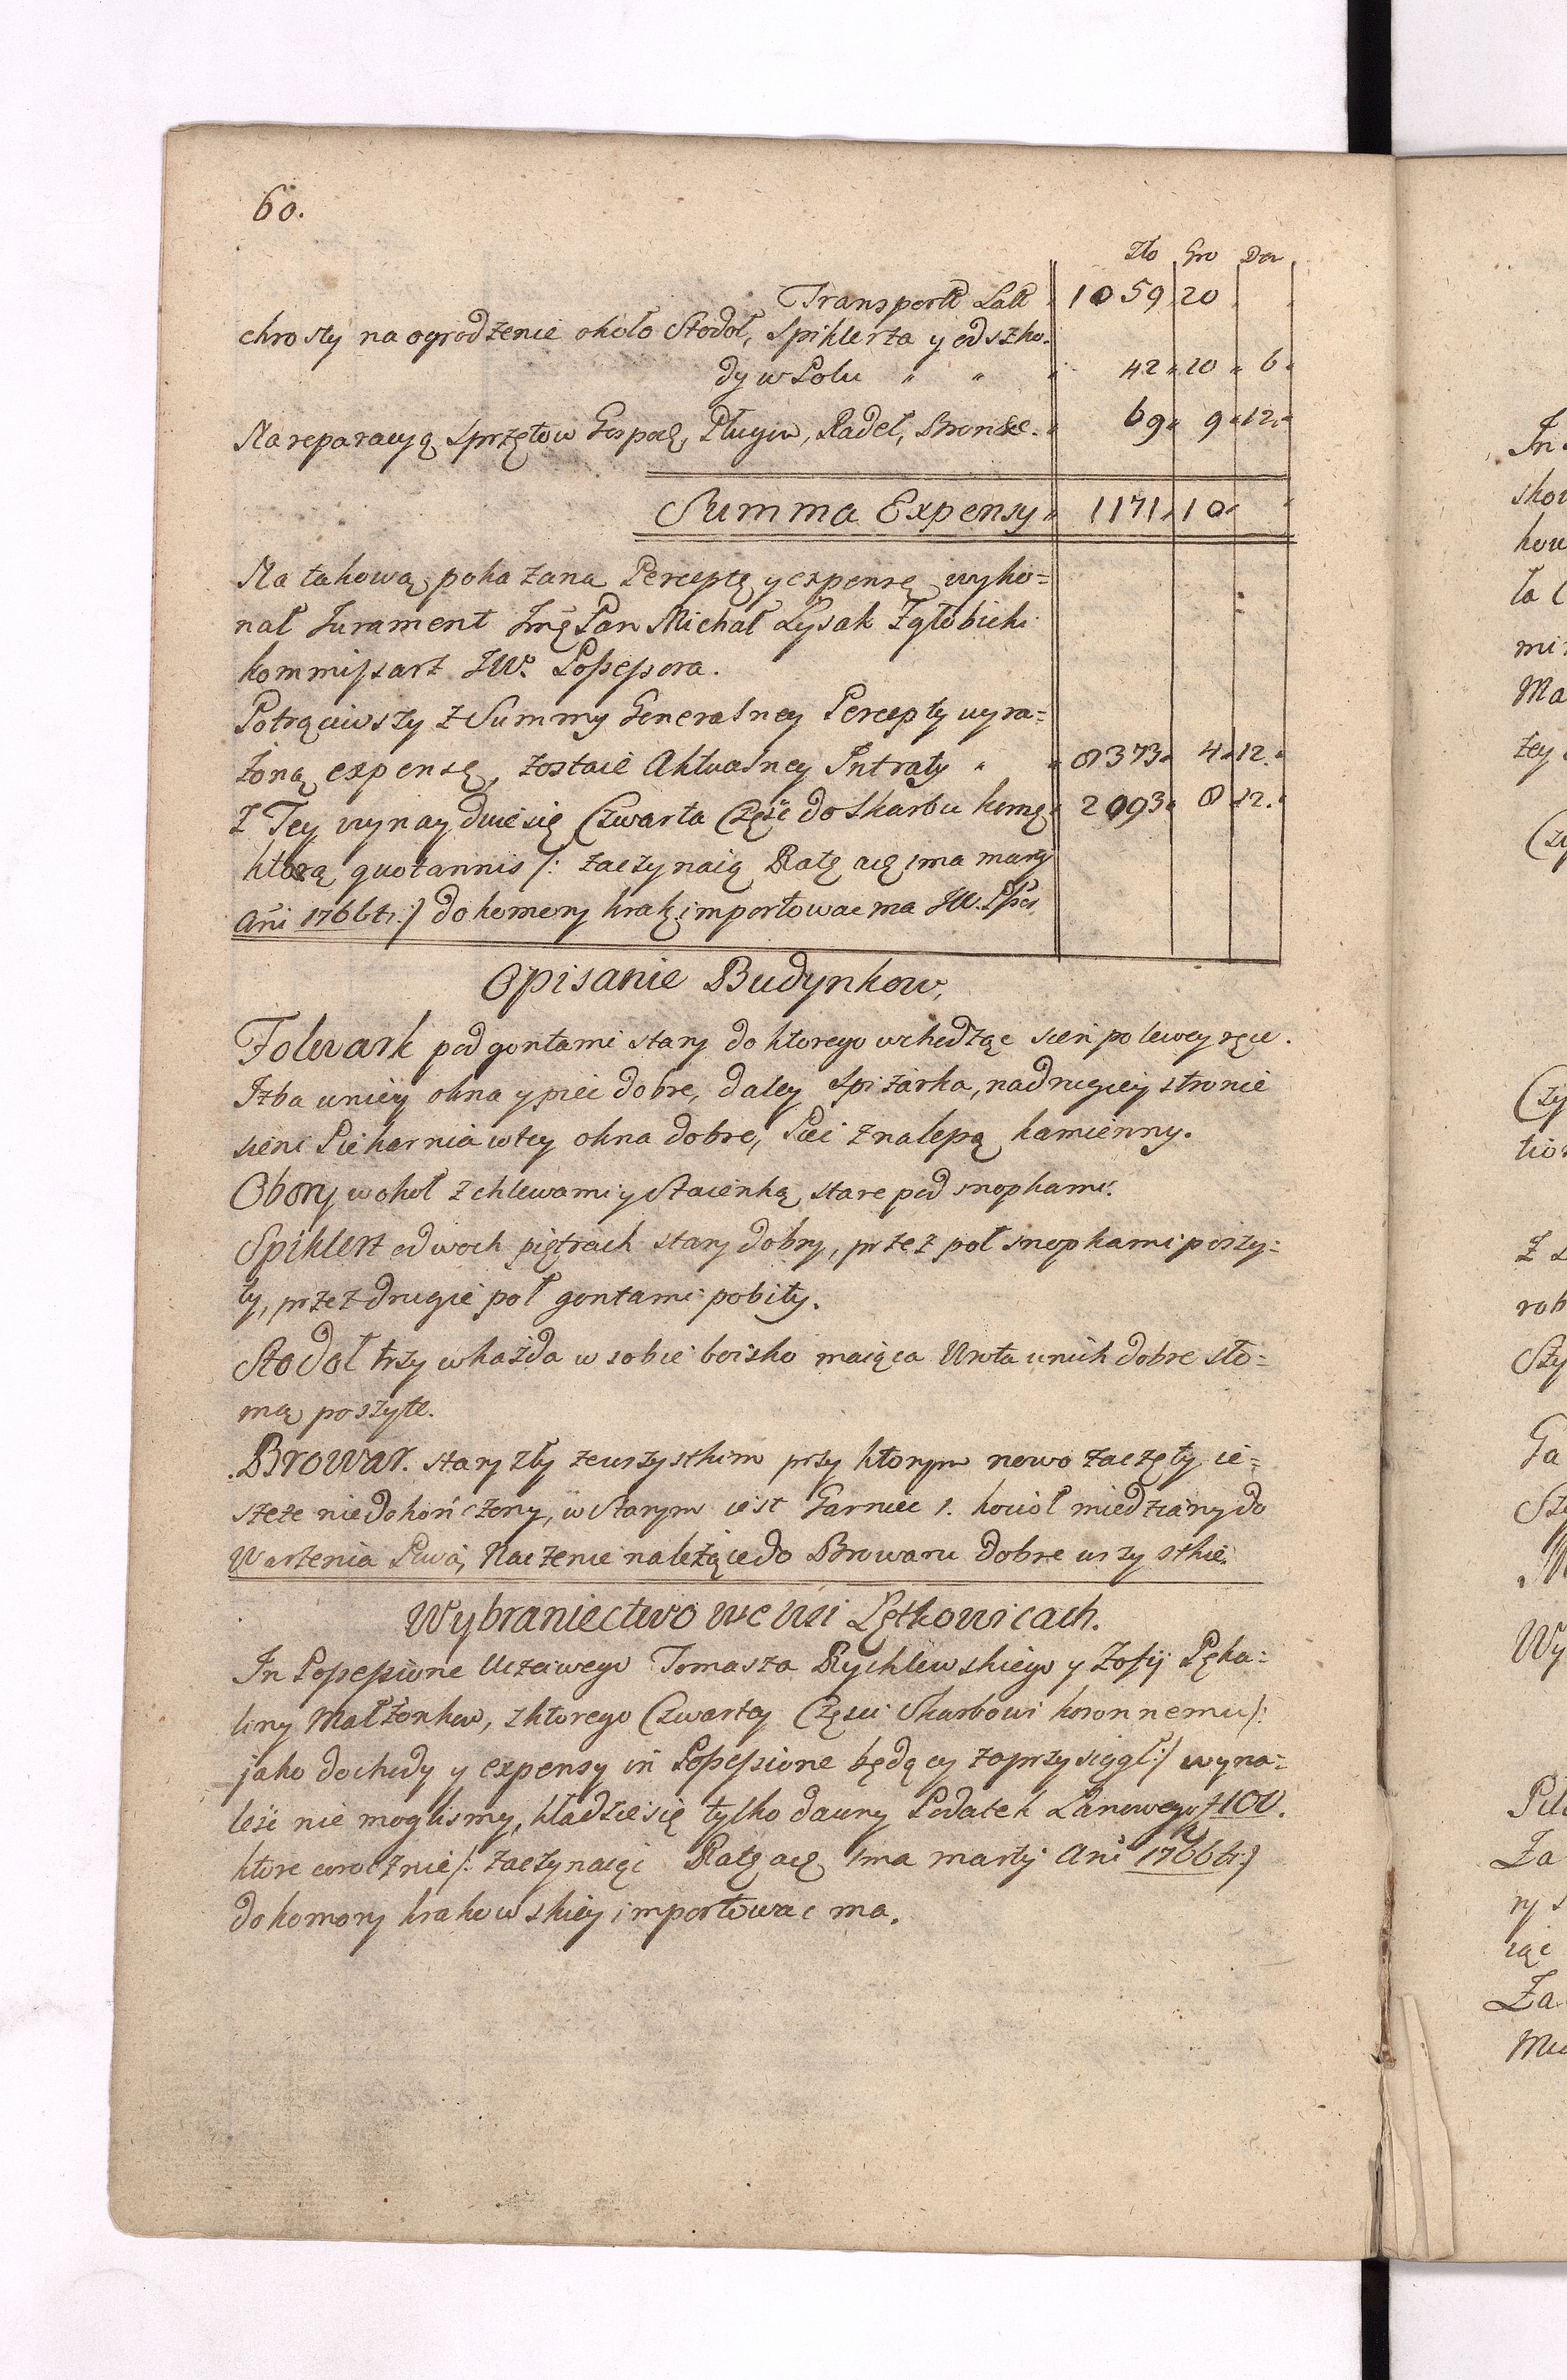 60.
Zło Gro Den
Transport Latt 1059 20
chrosty na ogrodzenie około Stodoł, Spiklerza y od szko-
dy w Polu " " 42 20 6
Na reparacyą Sprzętow Gospod, Pługow, Radeł, Bron &c. 69 9 12
Summa Expensy 1171 10
Na takową pokazaną Perceptę y expensę wyko=
nał Jurament Jmć Pan Michał Łysak Zgłobicki
kommissarz JW. Possessora.
Potrąciwszy z Summy Generalney Percepty wyra=
żoną expensę, zostaie Aktualney Intraty " 8373 4 12
Z Tey wynayduie się Czwarta Część do Skarbu 2093 8 12
ktorą quotannis /: zaczynaią Ratę 1ma martij
Ani 1766ti :/ do komory krak: importowac ma JW. Psses
Opisanie Budynkow,
Folwark pod gontami stary do ktorego wchodząc sień po lewey ręce.
Izba w niey okna y piec dobre, daley Spiżarka, na drugiey stronie
sieni Piekarnia w tey okna dobre, Piec z nalepą kamienny.
Obory wokoł z chlewami y Staienką stare pod snopkami.
Spiklerz o dwoch piętrach stary dobry, przez poł snopkami poszy=
ty, przez drugie poł gontami pobity.
Stodoł trzy w każda w sobie boisko maiąca Wrota u nich dobre sło=
mą poszyte.
Browar. stary zły ze wszystkim przy ktorym nowo zaczęty ie=
szcze niedokończony, w Starym iest Garniec 1. kocioł miedziany do
Warzenia Piwa, Naczenie należące do Browaru dobre wszystkie.
Wybraniectwo we Wsi Łętkowicach.
In Possessione Uczciwego Tomasza Rychlewskiego y Zofij Pęka=
liny Małżonkow, z ktorego Czwartey Części Skarbowi koronnemu /:
jako dochody y expensy in Possessione będący zaprzysiągł :/ wyna=
leść nie moglismy, kładzie się tylko dawny Podatek Łanowego f 100.
ktore corocznie /: zaczynaiąc Ratę 1ma martij Ani 1766ti :/
do komory krakowskiey importowac ma.